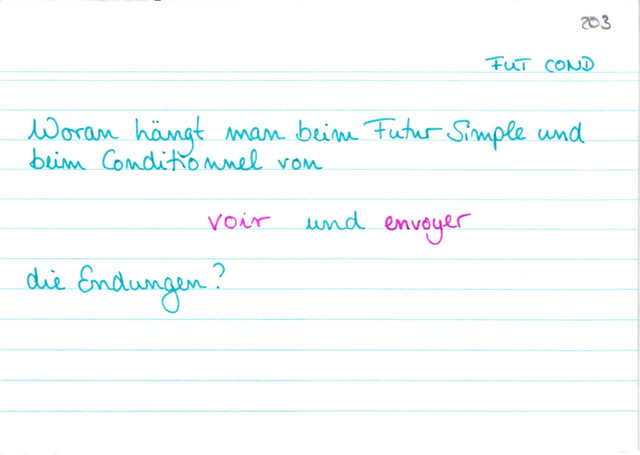 203
FUT COND
Woran hängt man beim Futur Simple und
beim Conditionnel von
voir und envoyer
die Endungen?